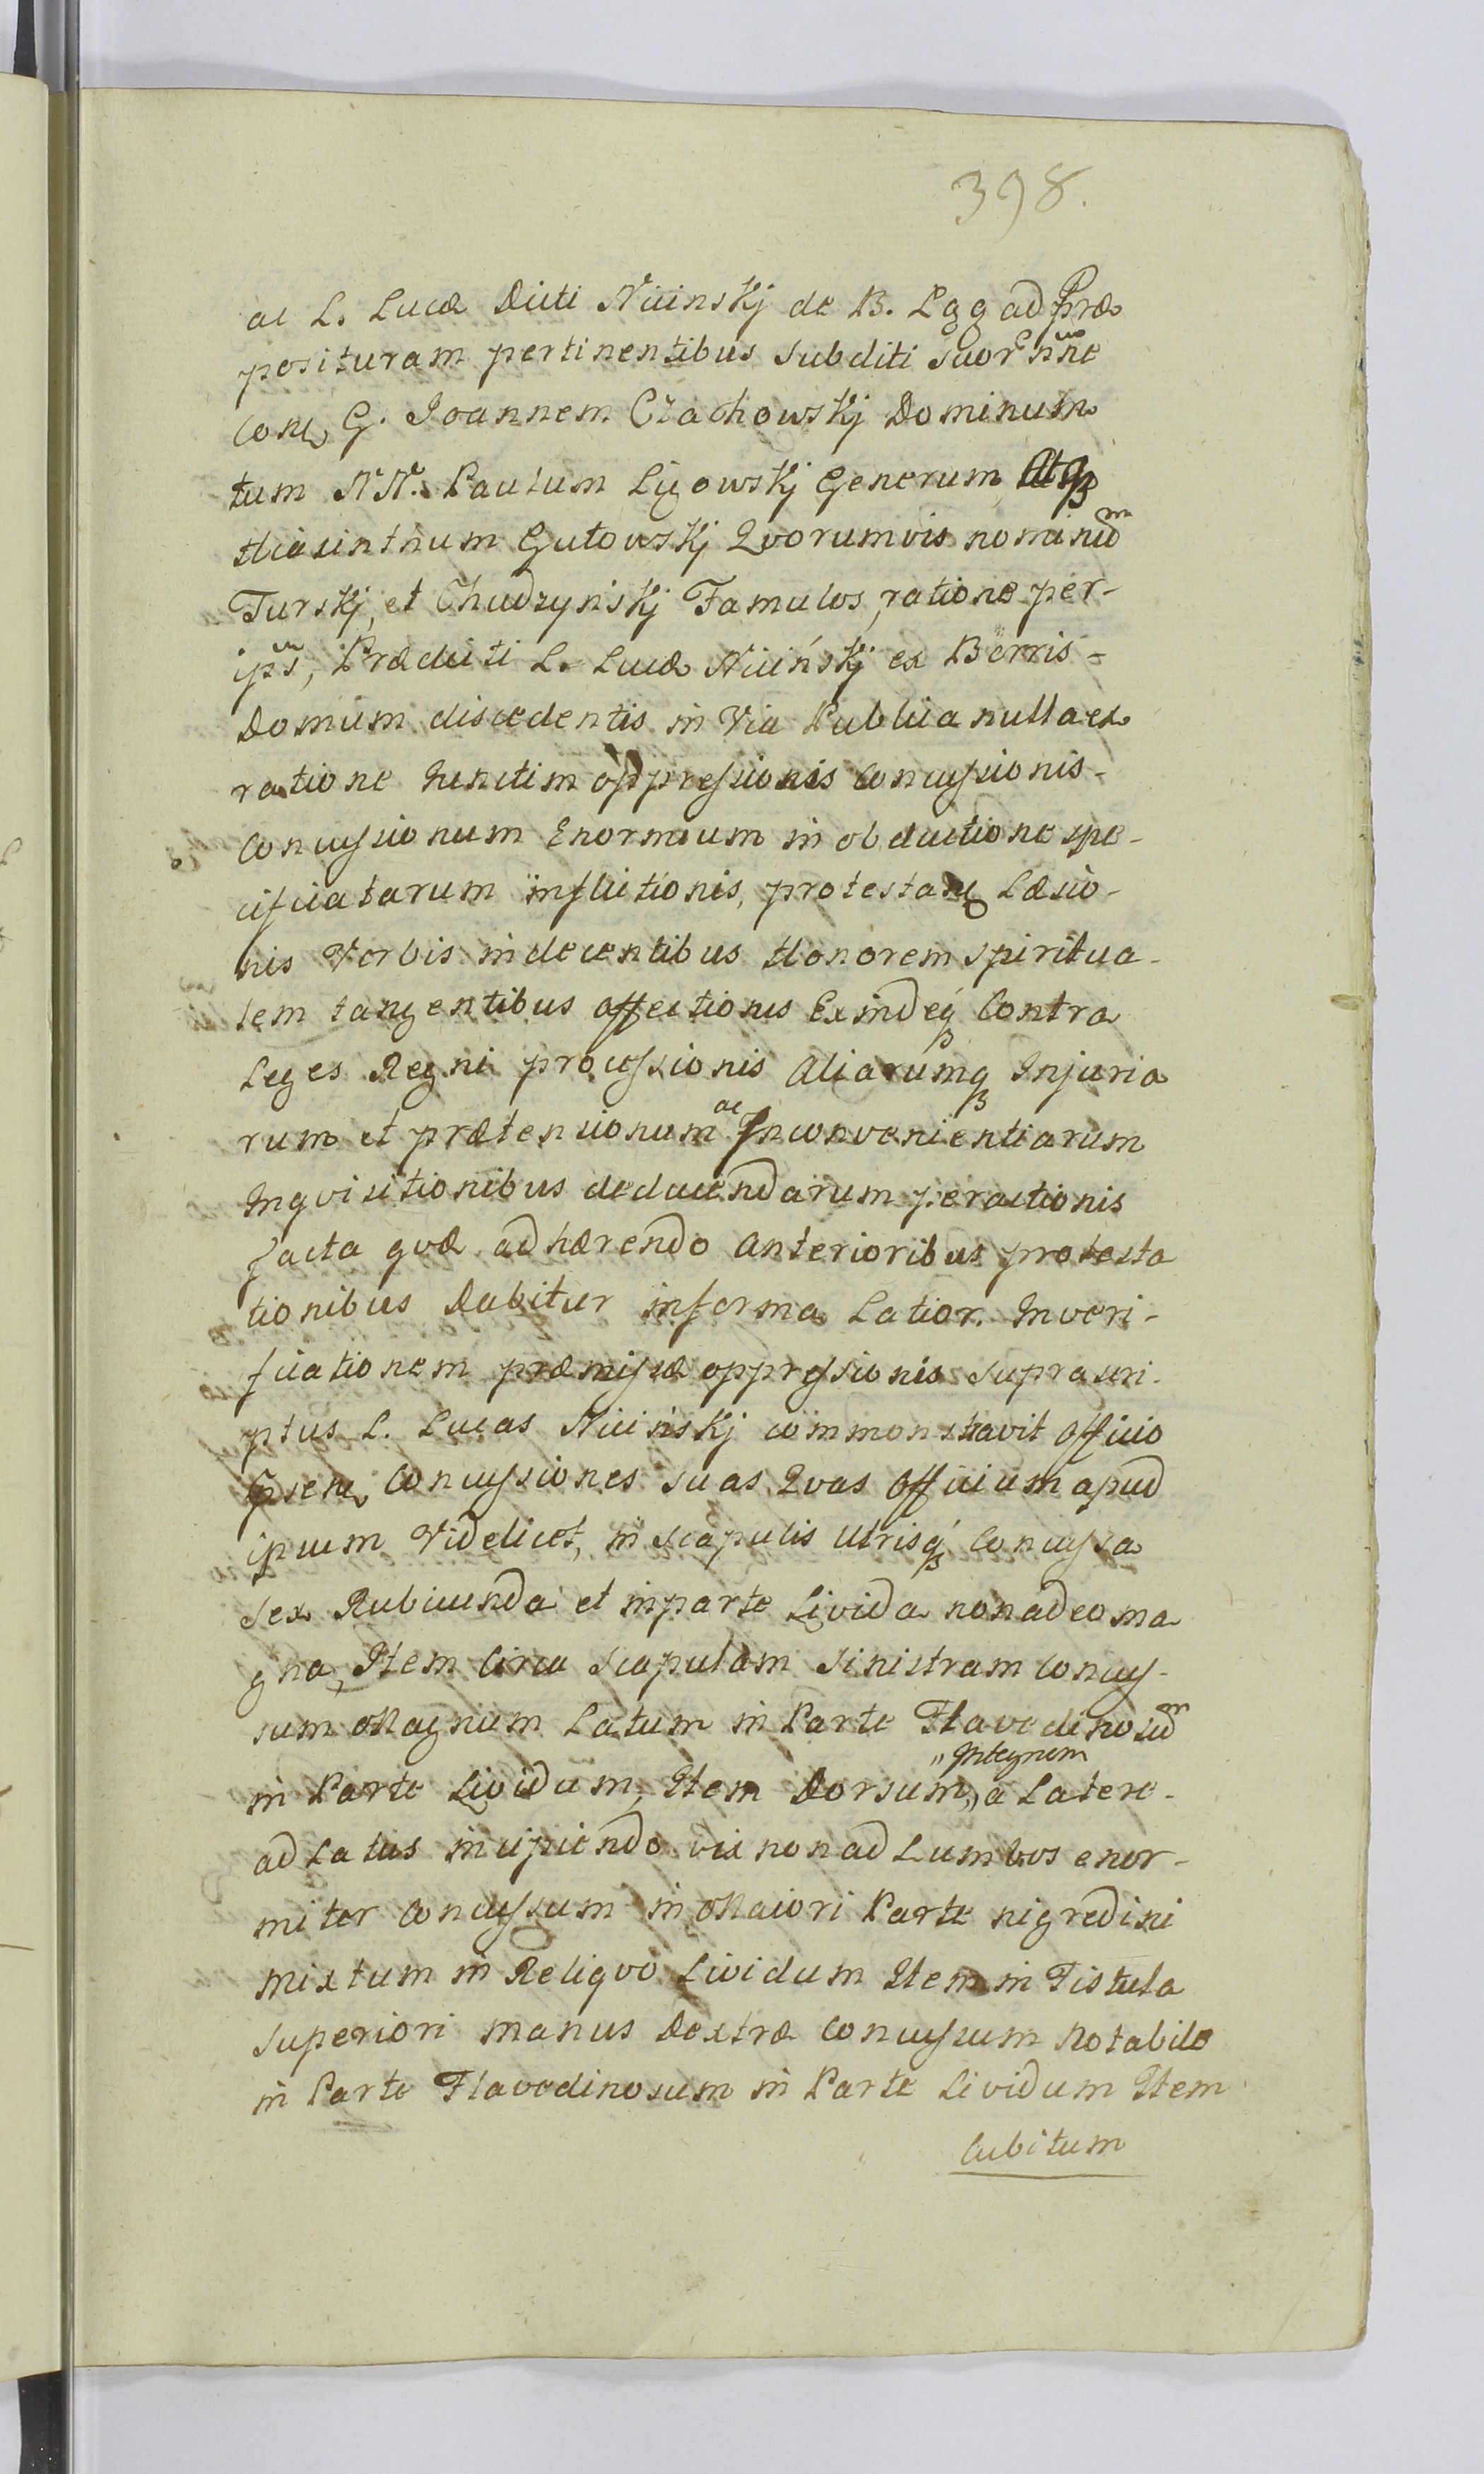 398.
ac L. Lucæ Dicti Nicinskj de B. Lgg ad Præ
posituram pertinentibus subditi suor nne
Con͠e G. Joannem Czachowskj Dominum
tum NN. Paulum Ligowskj Generum, Atq
Hiacinthum Gutowskj Qvorumvis nominu͠m
Turskj, et Chudzynskj Famulos, ratione per-
ips, Prædicti L. Lucæ Nicińskj ex Berris-
Domum discedentis in Via Publica nulla ex
ratione hinctim oppressionis Concussionis-
Concussionum Enormium in obductione spe-
cificatarum inflictionis, protestan͠e Læsio-
nis Verbis indecentibus Honorem spiritua-
lem tangentibus affectionis Exindeq Contra
Leges Regni processionis Aliarumq Injuria
rum et prætensionum ac Inconvenientiarum
Inqvisitionibus deducendarum peractionis
facta qvæ adhærendo anterioribus protesta
tionibus Dabitur in forma Latior. In veri-
ficationem præmissæ oppressionis suprascri-
ptus L. Lucas Nicinskj commonstravit Officio
psen͠e Concussiones suas Qvas Officium apud
ipsum Videlicet, in scapulis utrisq Concussa
sex Rubicunda et in parte Livida non adeo ma
gna, Item Circa scapulam sinistram Concus-
sum Magnum Latum in Parte Flavedinosu͠m
in Parte Lividum, Item Dorsum, „Integrum „a Latere-
ad Latus incipiendo vix non ad Lumbos enor-
miter Concussum in Maiori Parte nigredini
mixtum in Reliqvo Lividum Item in Fistula
superiori manus Dextræ Concussum Notabile
in Parte Flavedinosum in Parte Lividum Item
Cubitum